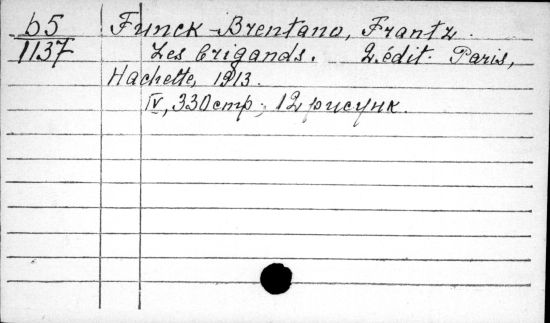 b5
1137
Funck-Brentano, Frantz.
Les brigands. 2. édit. Paris,
Hachette, 1913.
IV, 330 стр.; 12 рисунк.